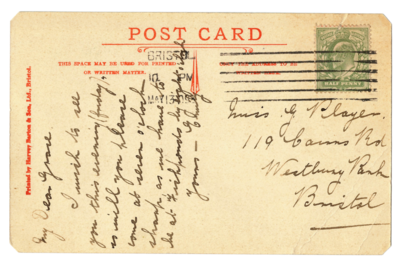 POST CARD
THIS SPACE MAY BE USED FOR PRINTED
OR WRITTEN MATTER.
BRISTOL
PM
MAY 13
HALF PENNY
Printed by Harvey Barton & Son, Ltd., Bristol.
My Dear Grace
I wish to see
you this evening (friday),
so will you please
come at seven o'clock
sharp, as we have to
be at Fishponds by
yours
Miss. G Player.
119
Rd
Westbury Park
Bristol